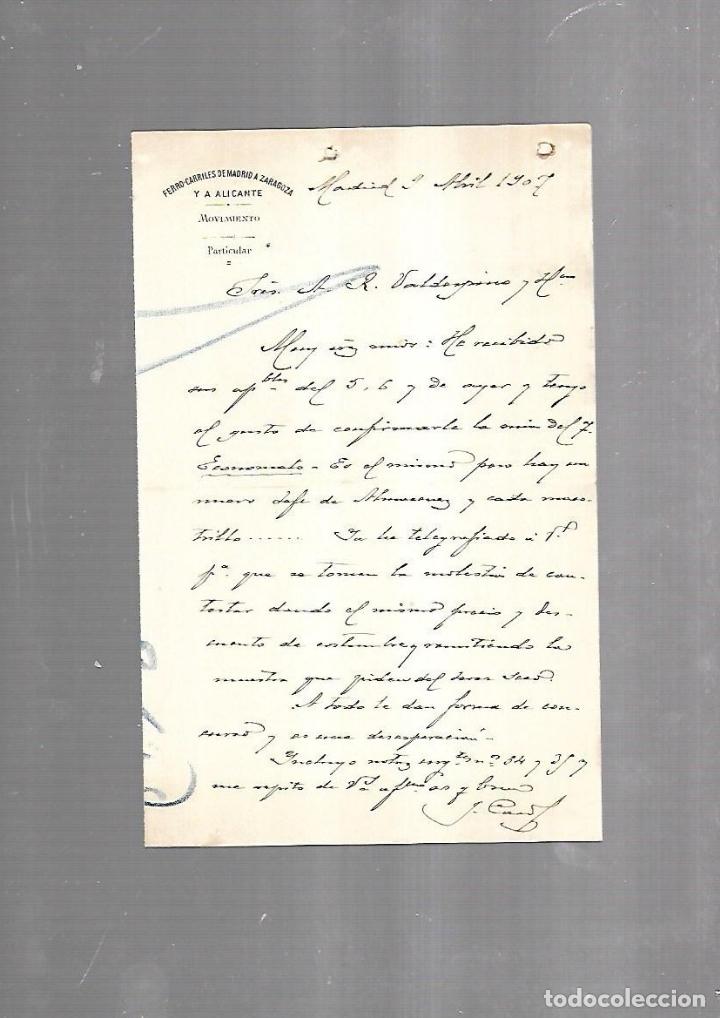 FERRO-CARRILES DE MADRID A ZARAGOZA
Y A ALICANTE
MOVIMIENTO
Particular
Madrid 9 Abril 1907
Sres. A. R. Valdespino y Hno
Muy Srs mios: He recibido
sus apbles del 5, 6 y de ayer y tengo
el gusto de confirmarle la mia del 7.
Economato - Es el mismo pero hay un
nuevo Jefe de Almacenes y cada maes-
trillo ...... Ya he telegrafiado á Vs
pa. que se tomen la molestia de con-
testar dando el mismo precio y des-
cuento de costumbre y remitiendo la
muestra que piden del Jerez Seco.
A todo le dan forma de con-
curso y es una desesperación -
Incluyo notas nos. 34 y 35 y
me repito de Vs afmo ss y
J.
todocoleccion.net